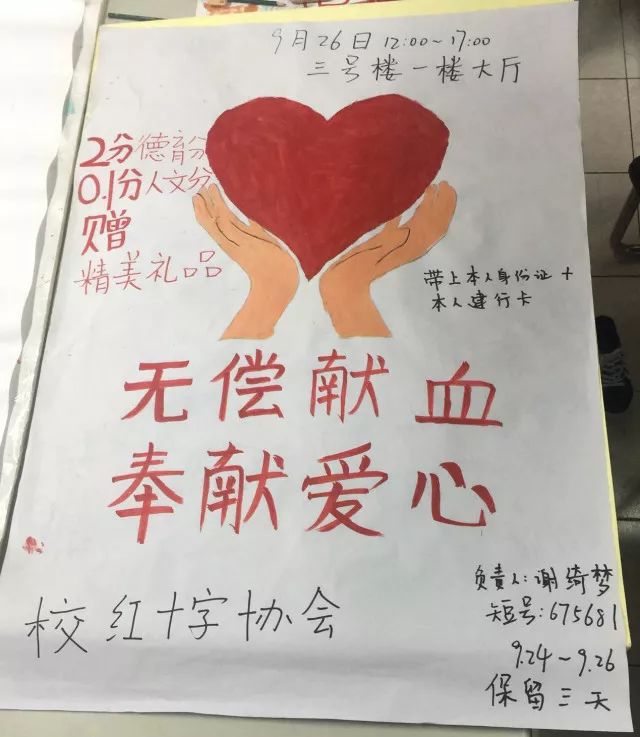 9月26日 12:00~17:00
三号楼一楼大厅
2分德育分
0.1分人文分
赠
精美礼品
带上本人身份证+
本人建行卡
无偿献血
奉献爱心
校红十字协会
负责人:谢绮梦
短号:675681
9.24~9.26
保留三天